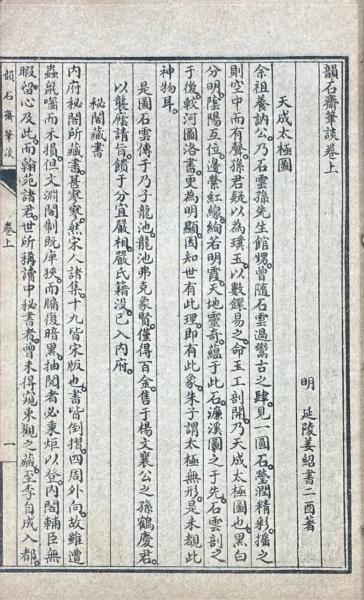 韻石齋筆談卷上
明　延陵姜紹書二酉著
天成太極圖
余祖養訥公。乃石雲孫先生館甥。曾隨石雲過鬻古之肆。見一圓石。瑩潤精彩。搖之
則空中而有聲。孫君疑以為璞玉。以數鐶易之。命玉工剖開。乃天成太極圖也。黑白
分明。陰陽互位。邊縈紅線。絢若明霞。天地靈奇。蘊于此石。濂溪圖之于先。石雲剖之
于後。較河圖洛書。更為明顯。因知世有此理。即有此象。朱子謂太極無形。是未覩此
神物耳。
是圖石雲傳于乃子龍池。龍池弗克象賢。僅得百金。售于楊文襄公之孫鶴慶君。
以襲廕請旨。饋于分宜嚴相。嚴氏籍沒。已入內府。
秘閣藏書
內府秘閣所藏書甚寥寥。然宋人諸集。十九皆宋版也。書皆倒摺。四周外向。故雖遭
蟲鼠囓而未損。但文淵閣制既庳狹。而牖復暗黑。抽閱者必秉炬以登。內閣輔臣無
暇留心及此。而翰苑諸君。世所稱讀中秘書者。曾未得窺東觀之藏。至李自成入都。
韻石齋筆談
卷上
一